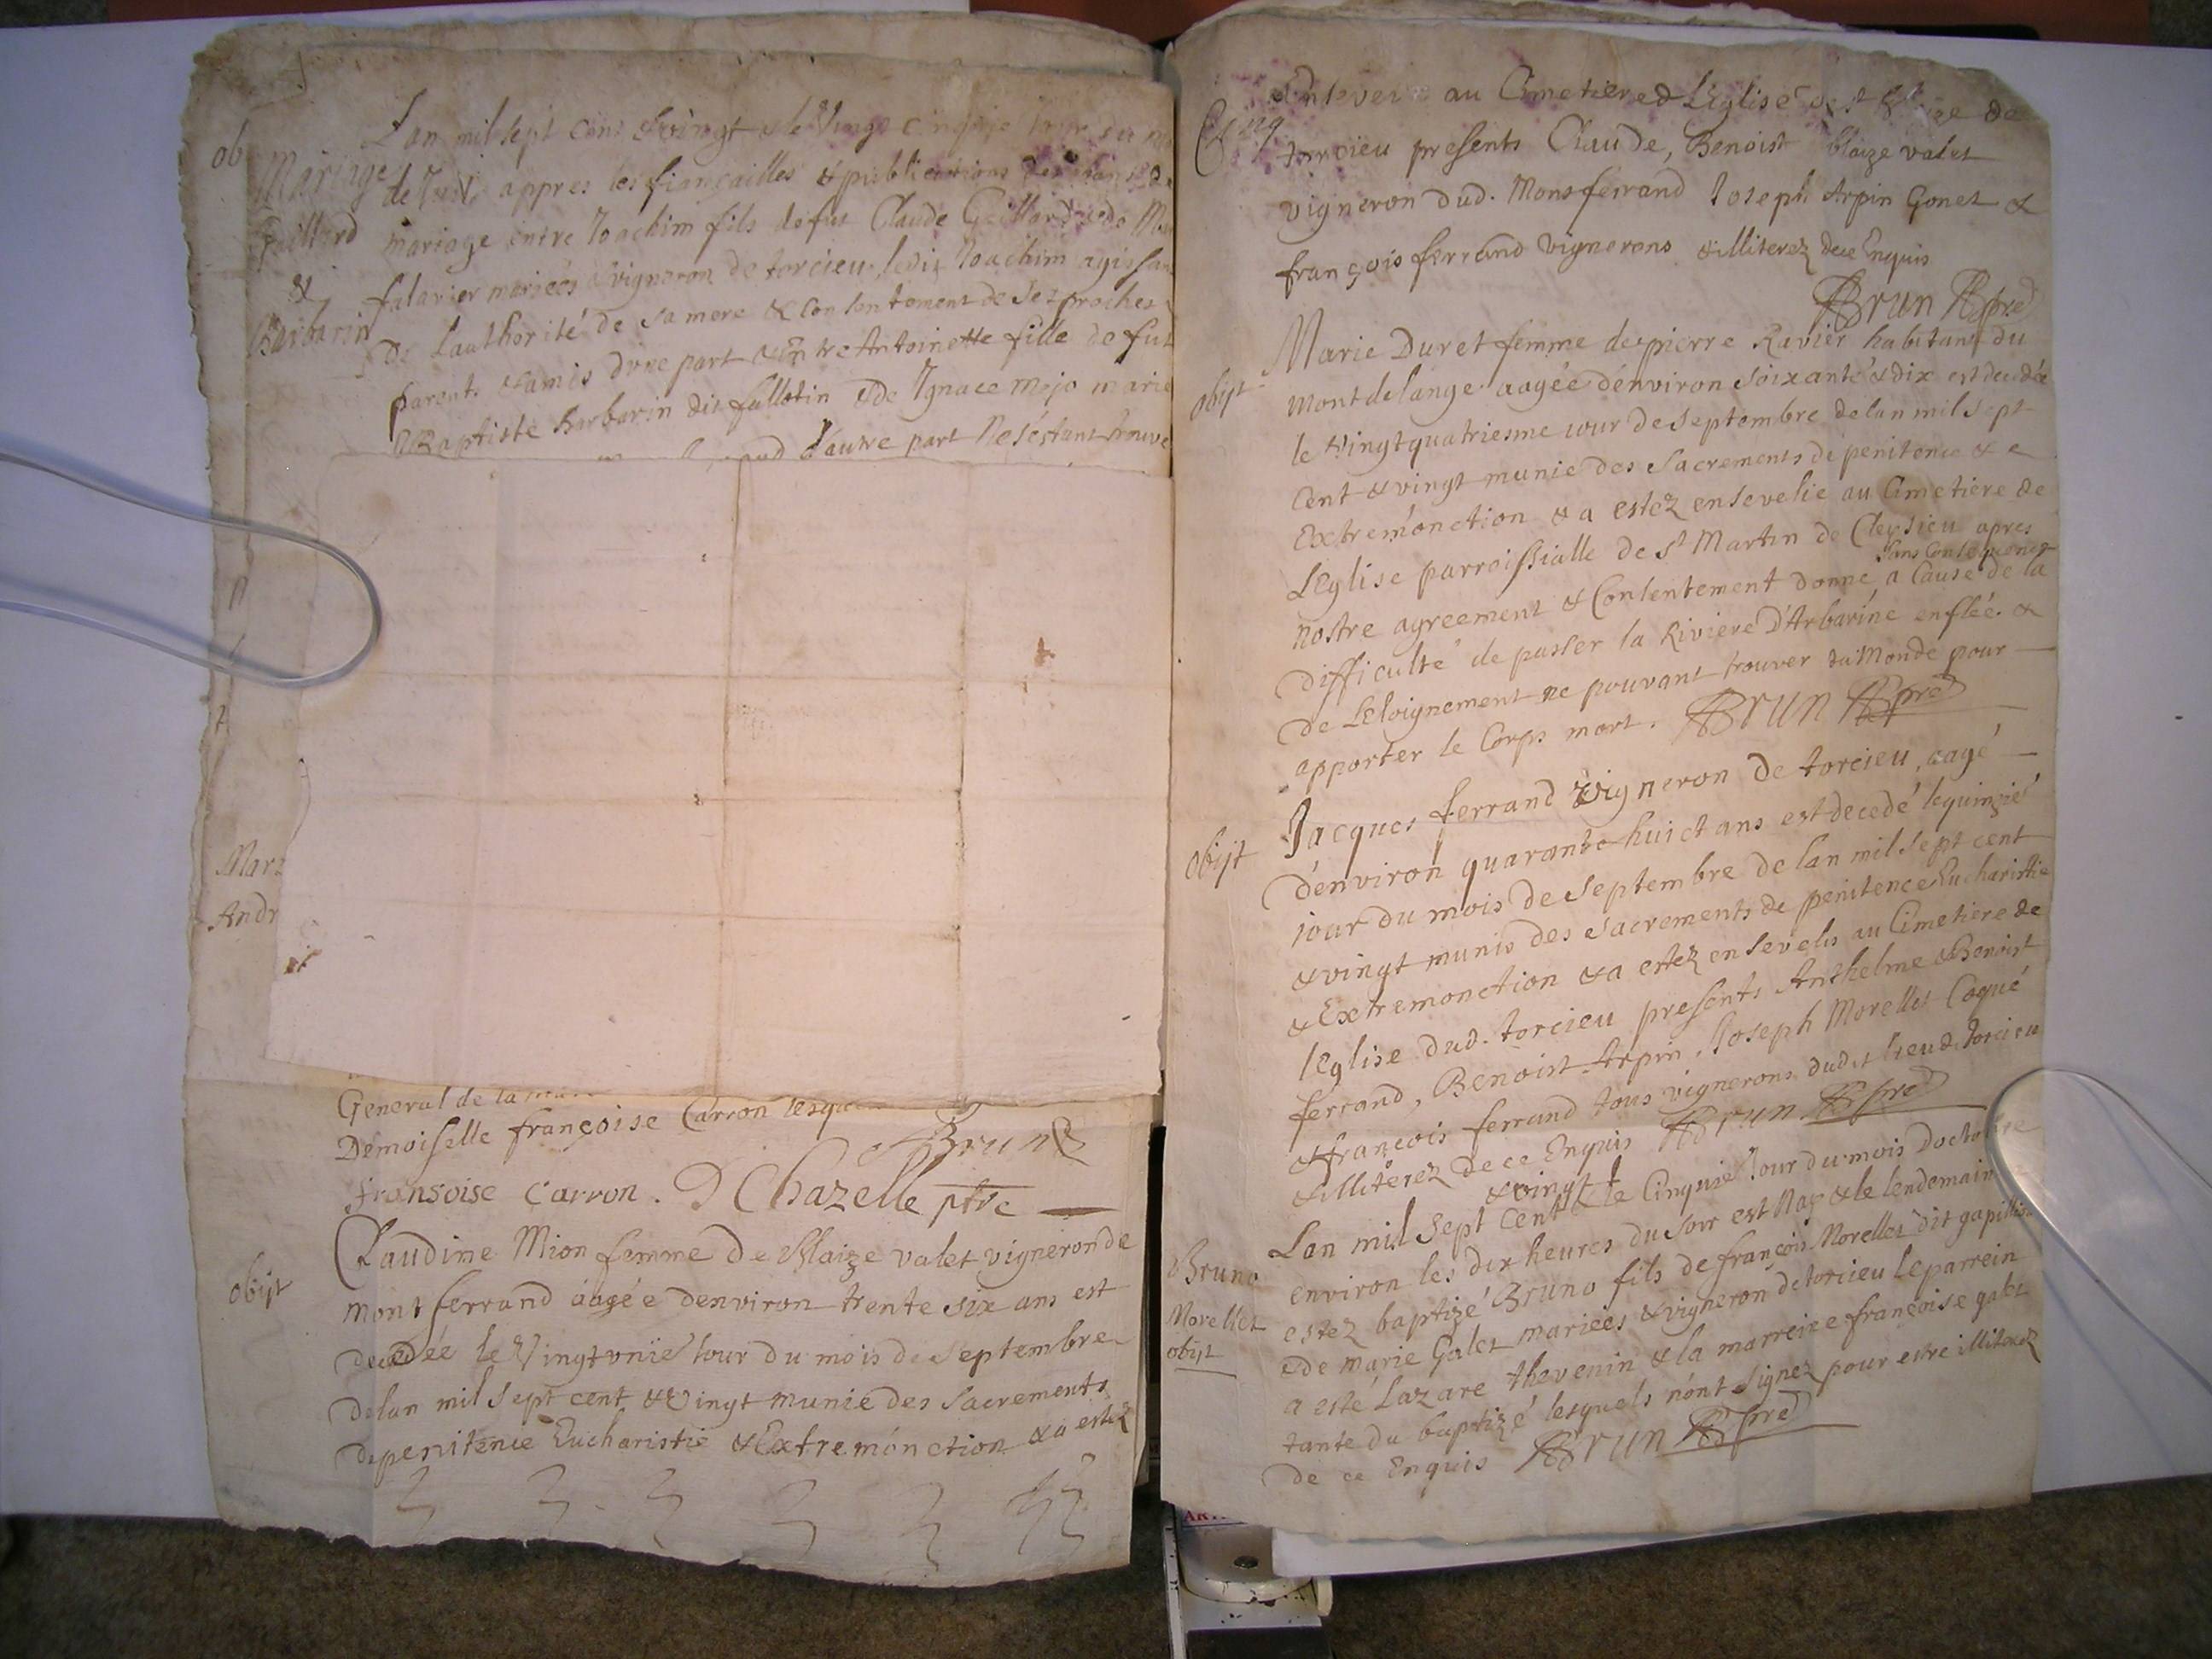 ob
Mariage
Gaillard
&
Barbarin
Lan mil sept cent & vingt & le Vingt cinqie jour du
de appres les fiançailles & publications des bans de
mariage entre Joachim fils de fut Claude Gaillard & de
falavier mariées & vigneron de torcieu ledit Joachim agissant
de Lauthorité de sa mere & consentement de ses proches
parents & amis dune part & Entre Antoinette fille de fut
Baptiste Barbarin dit fullotin & de Ignace mojo marie
d'autre part Ne sestant trouve
Mari
Andr
General de la
Demoiselle françoise Carron lesque
Brun
fransoise Carron. D Chazelle ptre
obijt
Claudine Mion femme de Blaize valet vigneron de
montferrand aagée denviron trente six ans est
decedée le Vingt vnie iour du mois de septembre
delan mil sept cent & Vingt munie des sacrements
de penitence Eucharistie & Extremonction & a estez
au Cimetiere de LEglise de st de
torcieu presents Claude, Benoist blaize valet
vigneron dud. Montferrand Joseph Arpin Gonet &
françois ferrand vignerons & illiterez de ce Enquis
Brun pre
obijt
Marie Duret femme de pierre Ravier habitant du
mont de lange aagée denviron soixante & dix est decedée
le Vingt quatriesme iour de Septembre de lan mil sept
Cent & vingt munie des Sacrements de penitence & e
Extremonction & a estez ensevelie au Cimetiere de
LEglise parroissialle de st Martin de Cleysieu apres
sans Consequence
nostre agreement & Consentement donné a Cause de la
difficulté de passer la Riviere d'Arbarine enflée. &
de Leloignement ne pouvant trouver du Monde pour
apporter le Corps mort. Brun pre
obijt
Jacques ferrand Vigneron de torcieu, aagé
denviron quarante huict ans est decedé le quinzie
iour du mois de Septembre de lan mil sept cent
& vingt munis des sacrements de penitence Eucharistie
& Extremonction & a estez ensevelis au Cimetiere de
lEglise dud. torcieu presents Anthelme & Benoist
ferrand, Benoist Arpin, Joseph Morellet Coqué
& françois ferrand tous vignerons dudit lieu de torcieu
& illiterez de ce Enquis Brun pre
Bruno
Morellet
obijt
& vingt
Lan mil sept cent & le Cinquie Iour du mois doctobre
environ les dix heures du soir est Nay & le lendemain
estez baptizé Bruno fils de françois Morellet dit gapillion
& de marie Galet mariees & vigneron de torcieu le parrein
a esté Lazare thevenin & la marreine françoise galet
tante du baptizé lesquels n'ont signez pour estre illiterez
de ce Enquis Brun pre